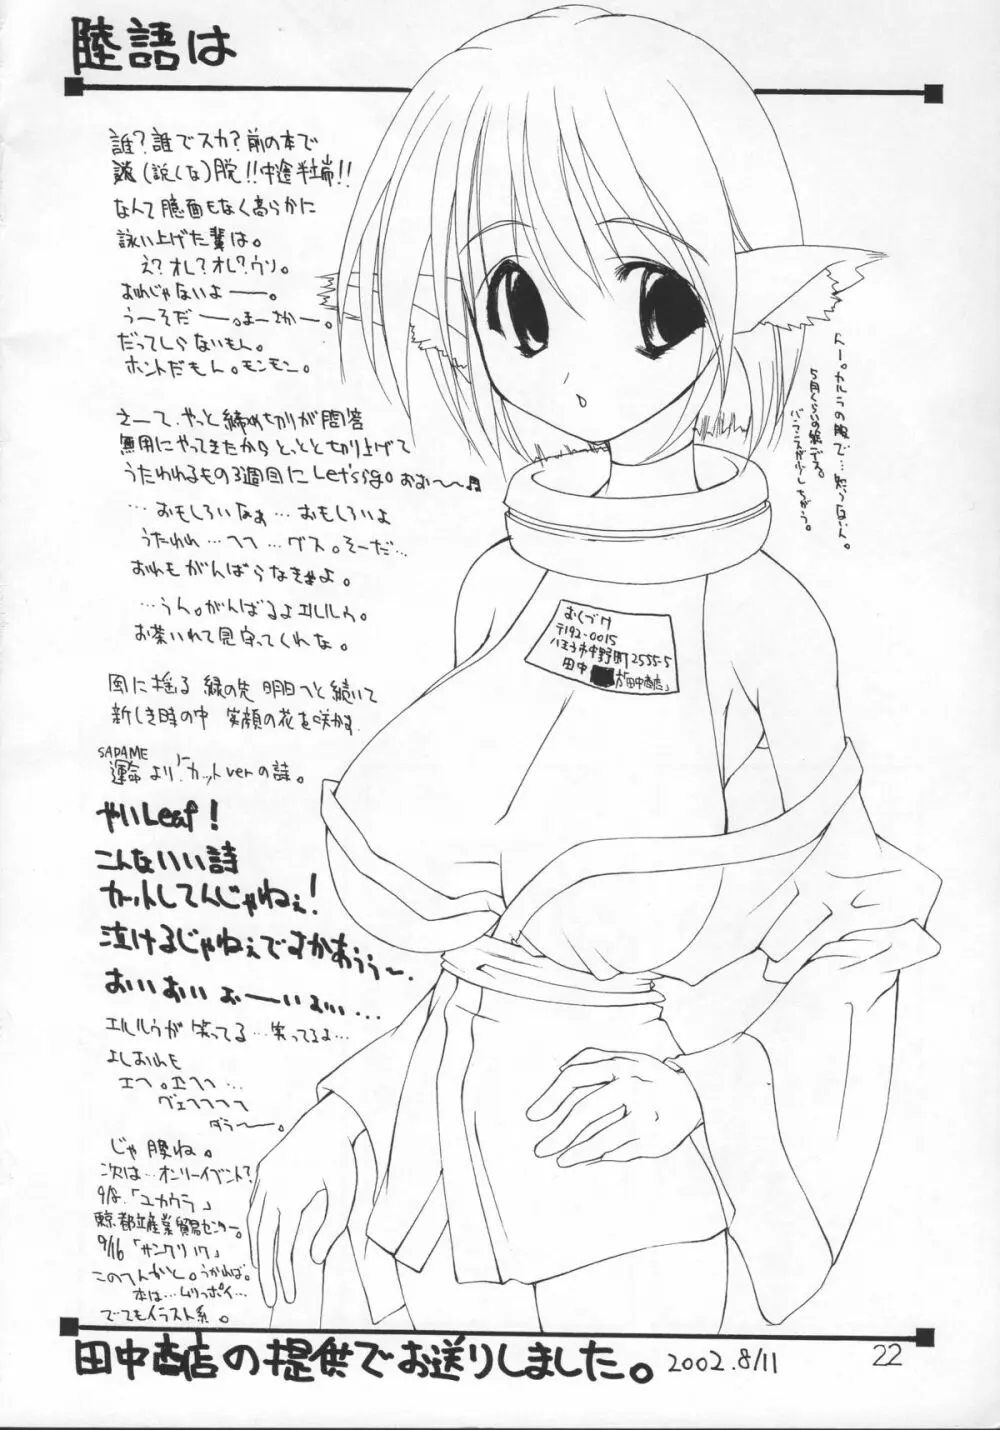 陸語は
誰？誰でスカ？前の本で
談（説しな）脱！！中途半端！！
なんて臆面もなく高らかに
詠い上げた輩は。
え？オレ？オレ？ウソ。
おれじゃないよーー。
うーそだーー。まーさかー。
だってしらないもん。
ホントだもん。モンモン。
さーて、やっと締め切りが問答
無用にやってきたからとっとと切り上げて
うたわれるもの3週目にLet'sgo。おお～～♬
…おもしろいなぁ…おもしろいよ
うたわれ…へへ…グス。そーだ…
おれもがんばらなきゃよ。
…うん。がんばるよエルルゥ。
お茶いれて見守ってくれな。
風に揺る 緑の先 明日へと続いて
新しき時の中 笑顔の花を咲かす
SADAME
運命より「カットverの詩。
やいLeaf！
こんないい詩
カットしてんじゃねぇ！
泣けるじゃねぇですかあぅぅ～.
おいおいぉーいぉぃ…
エルルゥが笑ってる…笑ってるよ…
よしおれも
エヘ。エヘヘ…
グェヘヘヘヘ
ダラ～ー。
じゃ 腰ね。
次は…オンリーイベント？
9/8.「ユカウラ」
東京都立産業貿易センター。
9/16「サンクリ17」
このてんかと。うかれば。
本は…ムリっポイ…
でてもイラスト系。
んー。カルラの服で…思うないん。
5月くらいの絵でる。
バランスが少しちがう。
おくづけ
〒192-0015
八王子市中野町2555-5
田中 が「田中商店」
田中商店の提供でお送りしました。2002.8/11
22